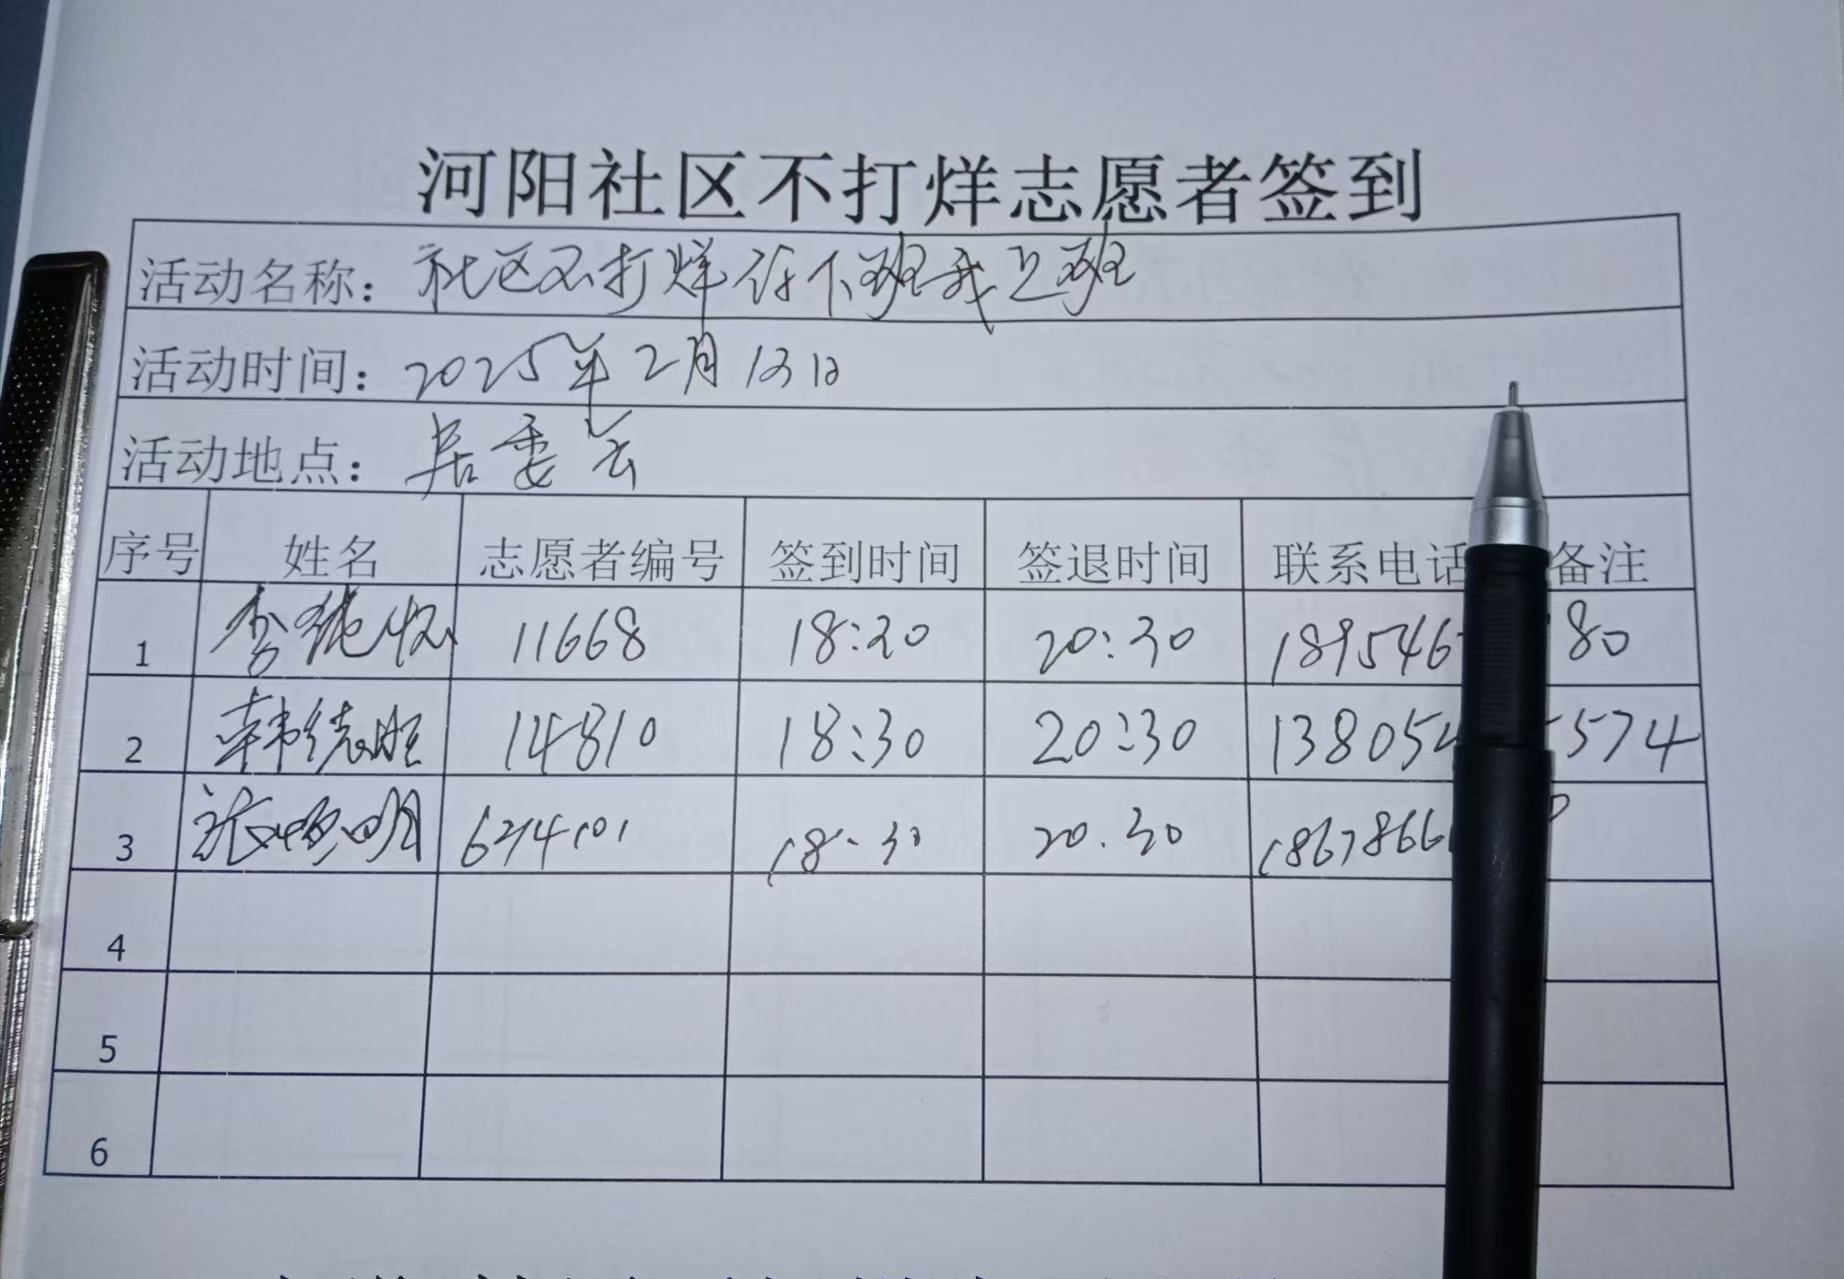 河阳社区不打烊志愿者签到
活动名称：社区不打烊 你下班我上班
活动时间：2025年2月13日
活动地点：居委会
序号 姓名 志愿者编号 签到时间 签退时间 联系电话 备注
1 李 11668 18:30 20:30 189546 80
2 韩德胜 14810 18:30 20:30 138054 574
3 张 明 18·30 20.30 1867866
4
5
6